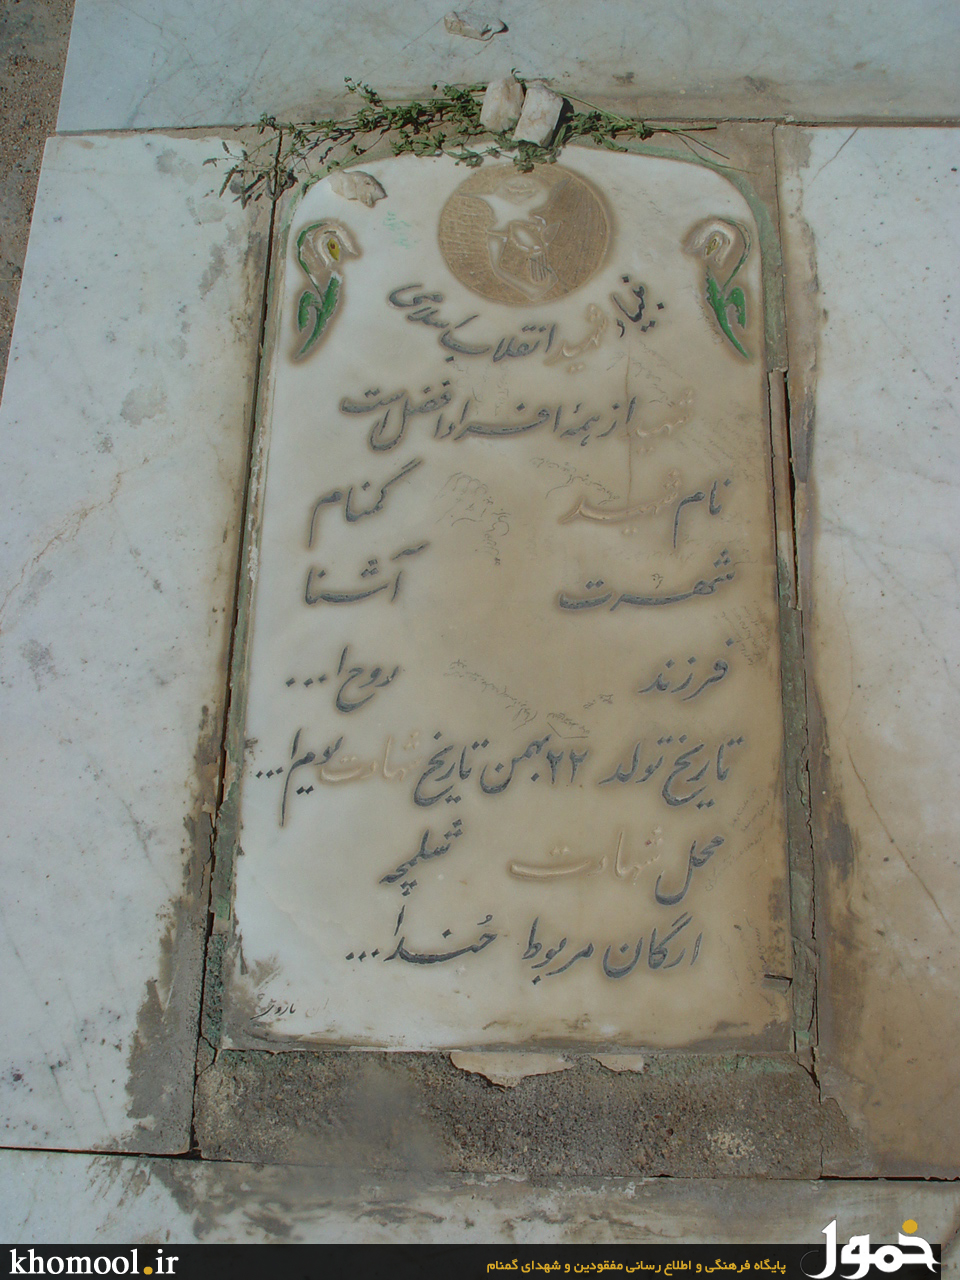 بنیاد شهید انقلاب اسلامی
شهید از همهٔ افراد افضل است
نام شهید گمنام
شهرت آشنا
فرزند روح ا...
تاریخ تولد ۲۲ بهمن تاریخ شهادت یوم ا...
محل شهادت شلمچه
ارگان مربوط خُدا...
khomool.ir
پایگاه فرهنگی و اطلاع رسانی مفقودین و شهدای گمنام
خمول